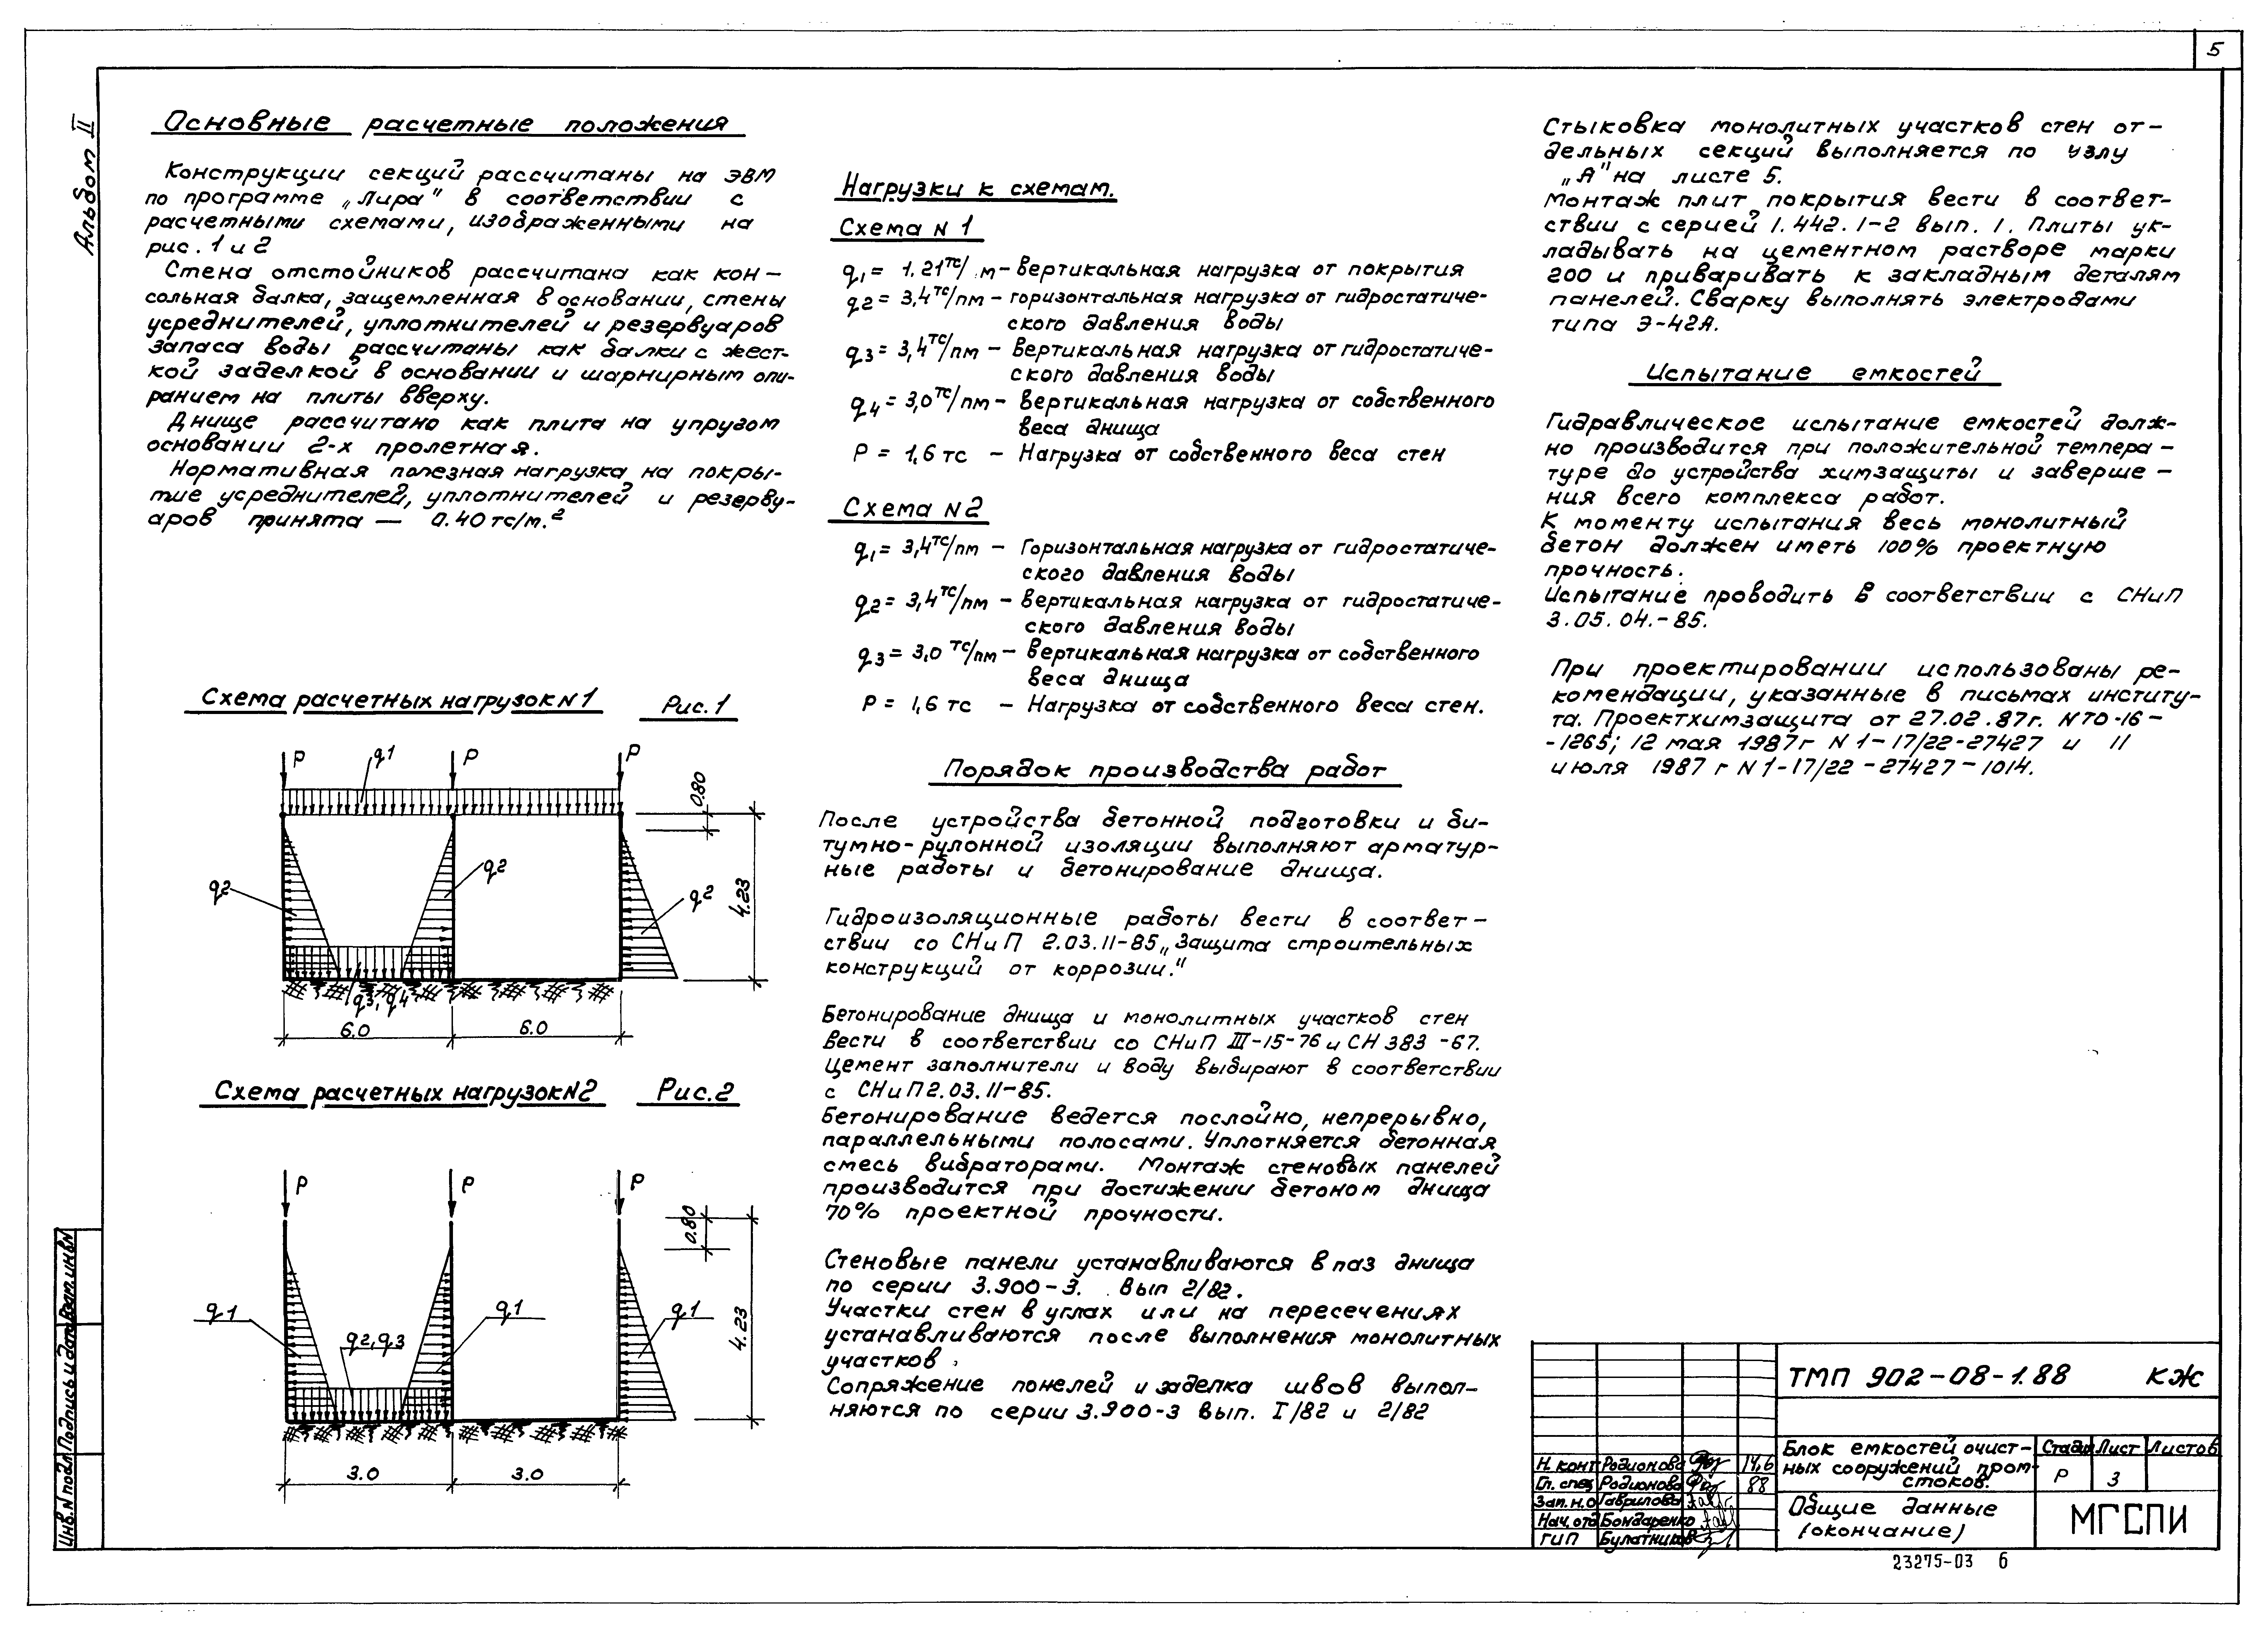 5
Альбом II
Основные расчетные положения
Конструкции секций рассчитаны на ЭВМ
по программе „Лира" в соответствии с
расчетными схемами, изображенными на
рис. 1 и 2
Стена отстойников рассчитана как кон-
сольная балка, защемленная в основании, стены
усреднителей, уплотнителей и резервуаров
запаса воды рассчитаны как балки с жест-
кой заделкой в основании и шарнирным опи-
ранием на плиты вверху.
Днище рассчитано как плита на упругом
основании 2-х пролетная.
Нормативная полезная нагрузка на покры-
тие усреднителей, уплотнителей и резерву-
аров принята — 0.40 тс/м.²
Схема расчетных нагрузок N 1 Рис. 1
P q1 P P
0.80
q2 q2 q2
4.23
q3, q4
6.0 6.0
Схема расчетных нагрузок N2 Рис. 2
P P P
0.80
q1 q1 q1
4.23
q2, q3
3.0 3.0
Нагрузки к схемам.
Схема N 1
q1 = 1.21 тс/ м – вертикальная нагрузка от покрытия
q2 = 3,4 тс/пм – горизонтальная нагрузка от гидростатиче-
ского давления воды
q3 = 3,4 тс/пм – вертикальная нагрузка от гидростатиче-
ского давления воды
q4 = 3,0 тс/пм – вертикальная нагрузка от собственного
веса днища
P = 1,6 тс – Нагрузка от собственного веса стен
Схема N2
q1 = 3,4 тс/пм – Горизонтальная нагрузка от гидростатиче-
ского давления воды
q2 = 3,4 тс/пм – вертикальная нагрузка от гидростатиче-
ского давления воды
q3 = 3,0 тс/пм – вертикальная нагрузка от собственного
веса днища
P = 1,6 тс – Нагрузка от собственного веса стен.
Порядок производства работ
После устройства бетонной подготовки и би-
тумно-рулонной изоляции выполняют арматур-
ные работы и бетонирование днища.
Гидроизоляционные работы вести в соответ-
ствии со СНиП 2.03.11-85 „Защита строительных
конструкций от коррозии."
Бетонирование днища и монолитных участков стен
вести в соответствии со СНиП III-15-76 и СН 383-67.
Цемент заполнители и воду выбирают в соответствии
с СНиП 2.03.11-85.
Бетонирование ведется послойно, непрерывно,
параллельными полосами. Уплотняется бетонная
смесь вибраторами. Монтаж стеновых панелей
производится при достижении бетоном днища
70% проектной прочности.
Стеновые панели устанавливаются в паз днища
по серии 3.900-3. вып 2/82.
Участки стен в углах или на пересечениях
устанавливаются после выполнения монолитных
участков.
Сопряжение понелей и заделка швов выпол-
няются по серии 3.900-3 вып. I/82 и 2/82
Стыковка монолитных участков стен от-
дельных секций выполняется по узлу
„А" на листе 5.
Монтаж плит покрытия вести в соответ-
ствии с серией 1.442.1-2 вып. 1. Плиты ук-
ладывать на цементном растворе марки
200 и приваривать к закладным деталям
панелей. Сварку выполнять электродами
типа Э-42А.
Испытание емкостей
Гидравлическое испытание емкостей долж-
но производится при положительной темпера-
туре до устройства химзащиты и заверше-
ния всего комплекса работ.
К моменту испытания весь монолитный
бетон должен иметь 100% проектную
прочность.
Испытание проводить в соответствии с СНиП
3.05.04.-85.
При проектировании использованы ре-
комендации, указанные в письмах институ-
та. Проектхимзащита от 27.02.87г. N ТО-16-
-1265; 12 мая 1987г N 1-17/22-27427 и 11
июля 1987 г N 1-17/22-27427-1014.
Инв. N подл Подпись и дата Взам. инв N
ТМП 902-08-1.88 КЖ
Блок емкостей очист-
ных сооружений пром-
стоков.
Стадия Лист Листов
Р 3
Общие данные
(окончание)
МГСПИ
Н. конт Родионова 14,6
Гл. спец Родионова 88
Зап. н.о Гаврилова
Нач. отд Бондаренко
ГИП Булатников
23275-03 6